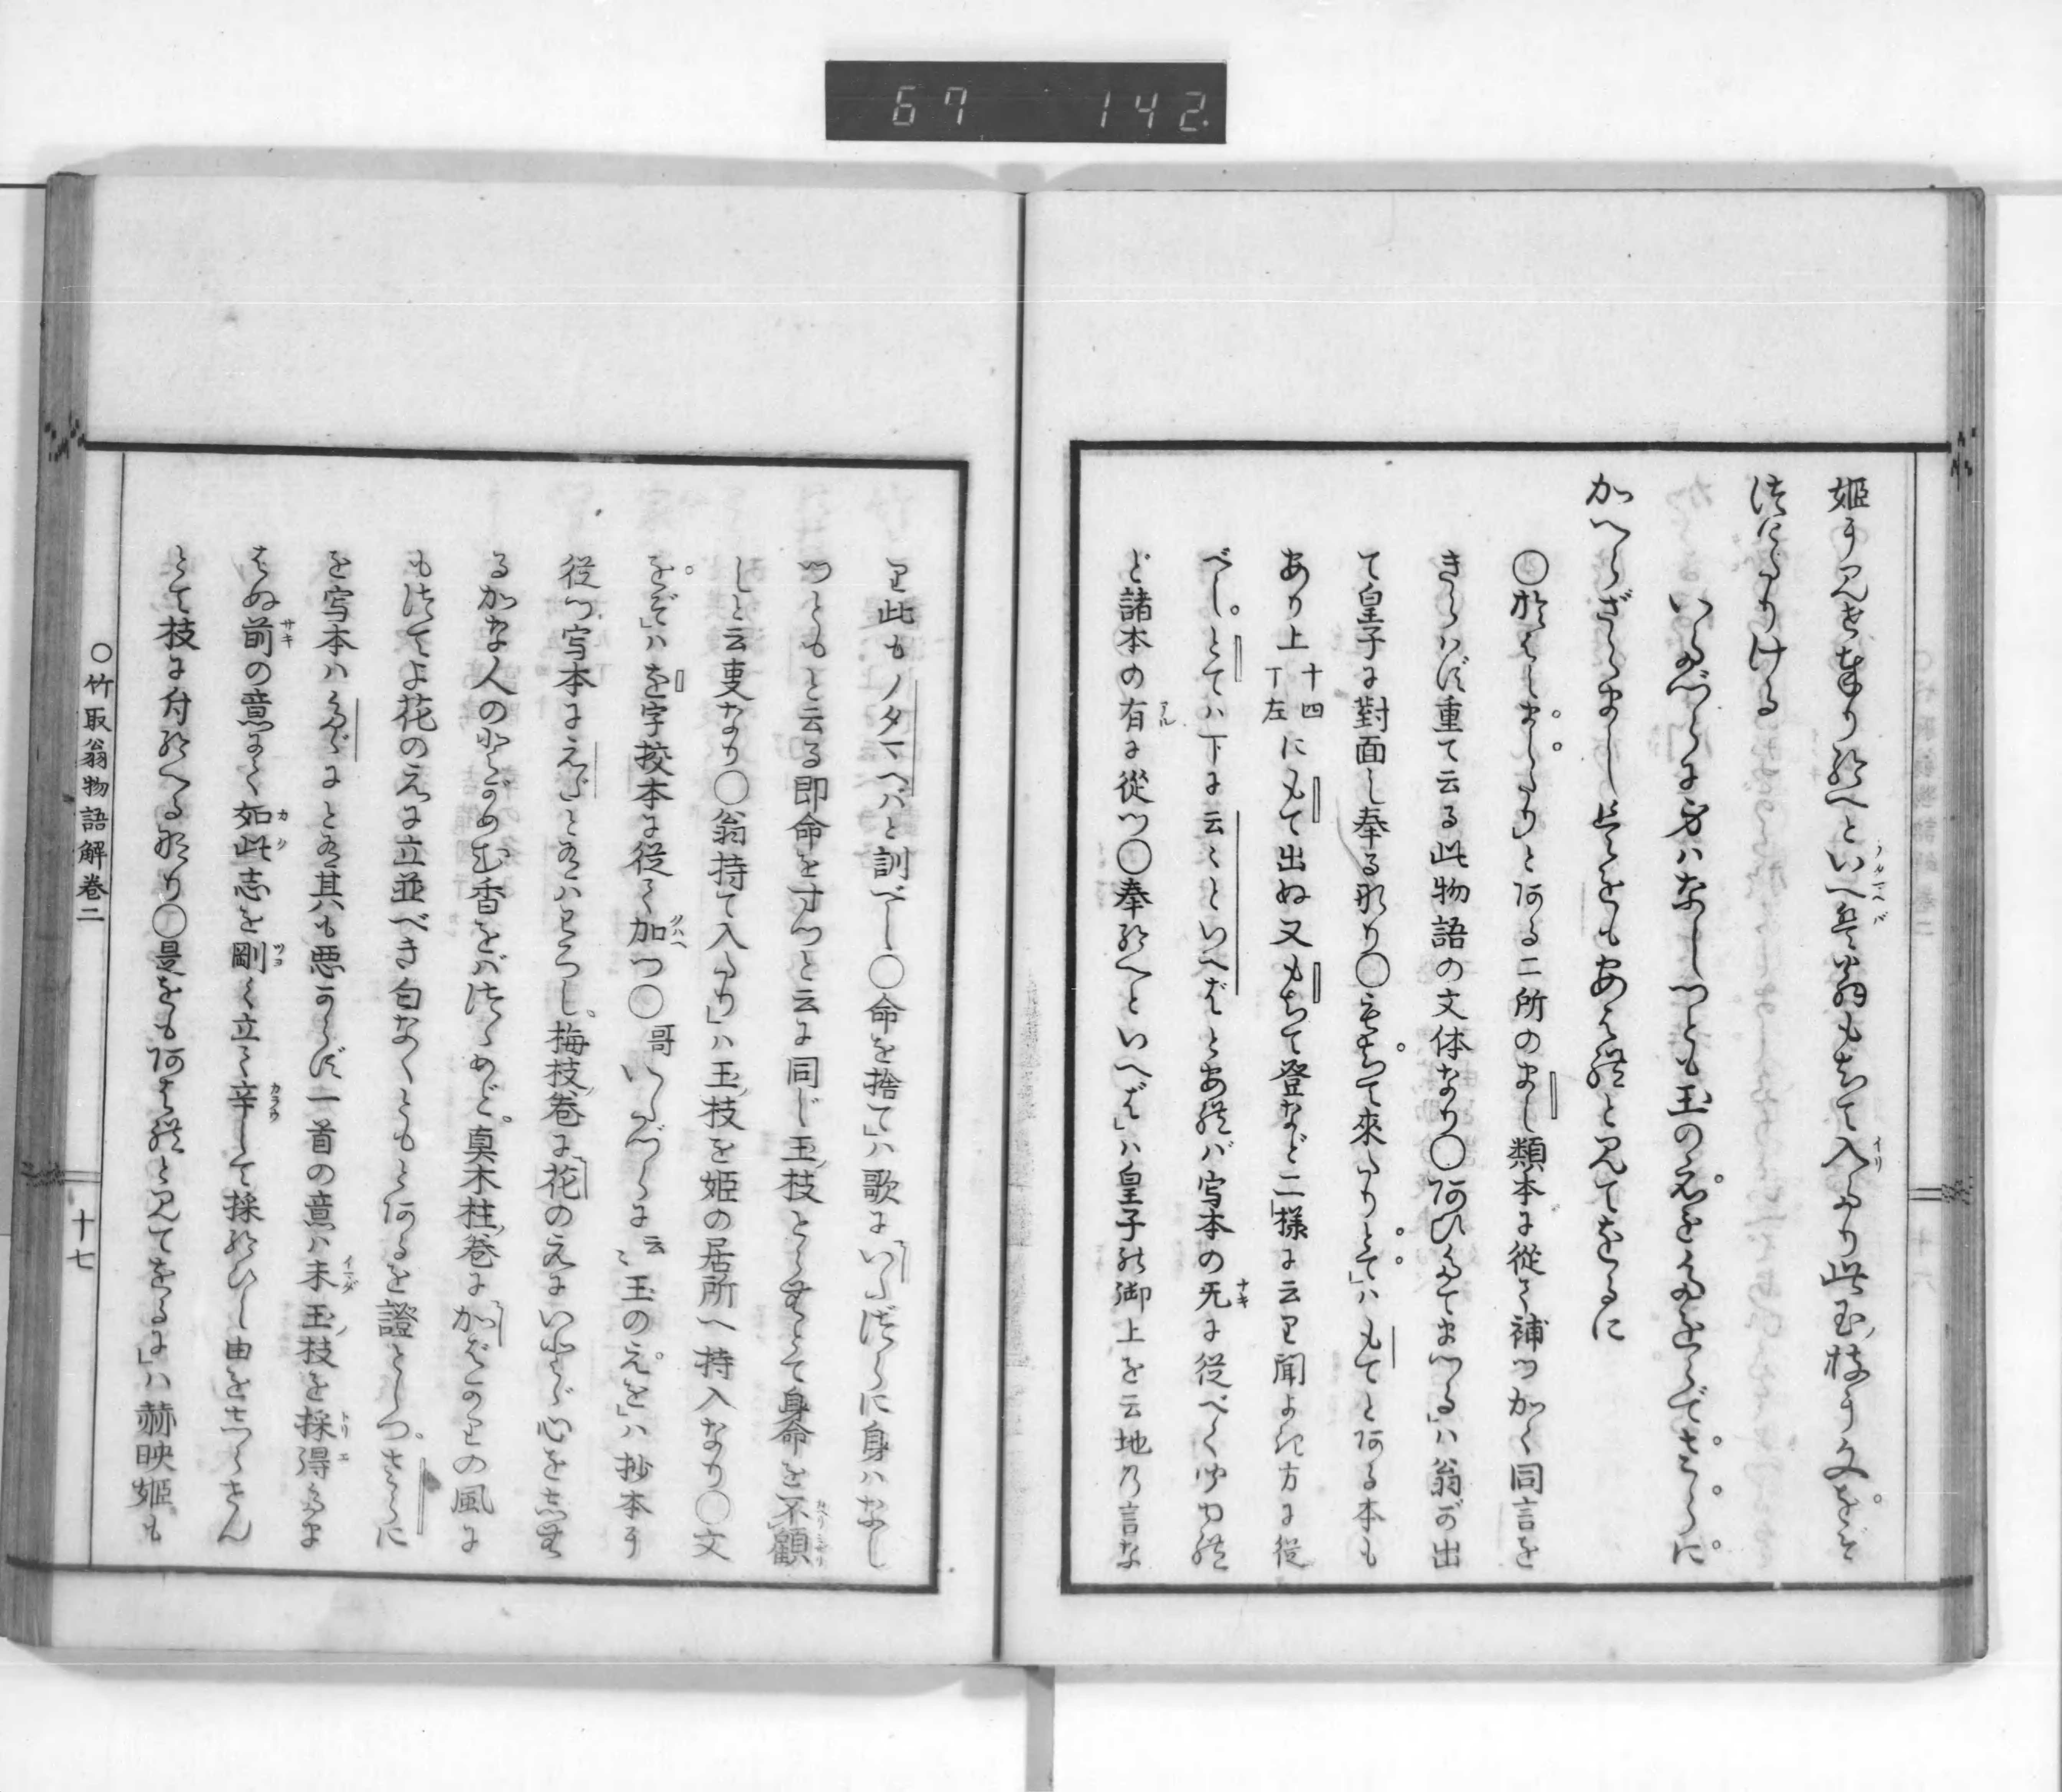 67 142.
姫に見せ奉り給へといへば翁もちて入たり此玉ノ枝に文をぞ
つけたりける
いたづらに身はなしつとも玉のえをたをらでさらに
かへらざらまし是をもあはれと見てをるに
○おはしましたり」とある二所のまし類本に從て補つかく同言を
きらはず重て云る此物語の文体なり○あひたてまつる」ハ翁が出
て皇子に對面し奉る也○もちて來たりとて」ハもてとある本も
あり上十四丁左にもて出ぬ又もちて登など二様に云り聞よき方に從
べし。とてハ下に云々といへばとあれバ写本の无に従べくゆれ
ど諸本の有に從つ○奉給へといへば」ハ皇子の御上を云地の言な
り此もノタマヘバと訓べし○命を捨て」ハ歌にいたづらに身ハなし
つともと云る即命を寸つと云に同じ玉ノ枝とらむとて身命を不顧
しと云事なり○翁持て入たり」ハ玉ノ枝を姫の居所へ持入なり○文
をぞ」ハを字挍本に従て加つ○哥いたづらに云々玉のえを」ハ抄本に
従つ写本にえだとあるハわろし。梅枝ノ巻に花のえにいとど心をしむ
るかな人のとがめむ香をばつゝめど。真木柱ノ巻に加ばかりの風に
もつてよ花のえに立並べき匂なくともとあるを證としつ。さらに
を写本ハたゞにとある其も悪からず一首の意ハ未玉ノ枝を採得たま
はぬ前の意にて如此志を剛く立て辛して採給ひし由をしらさん
とて枝に付給へる也○是をもあはれと見てをるに」ハ赫映姫も
○竹取翁物語解巻二
十七